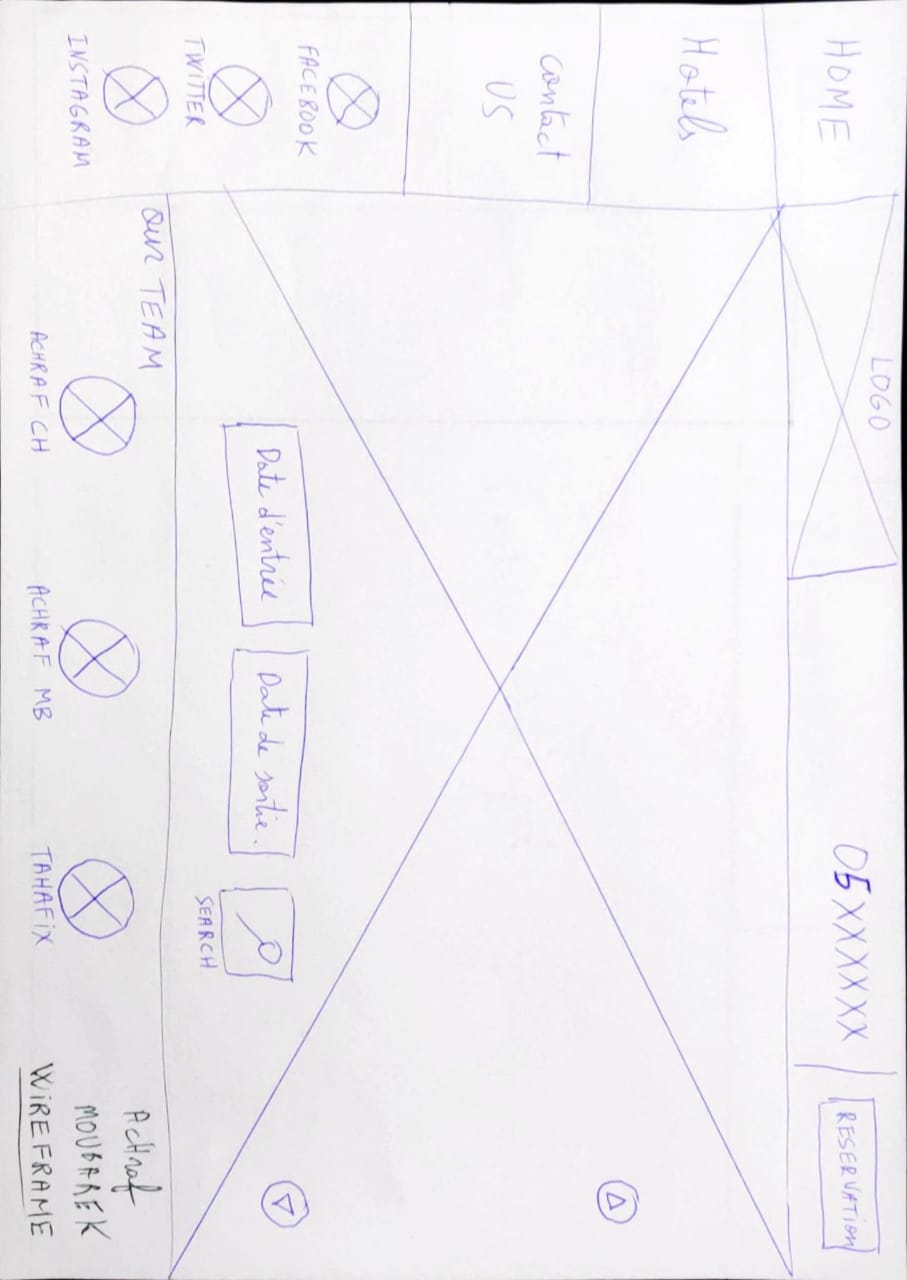 HOME
LOGO
05XXXXXX
RESERVATION
Hotels
Contact
US
FACEBOOK
TWITTER
INSTAGRAM
Date d'entrée
Date de sortie.
SEARCH
OUR TEAM
ACHRAF CH
ACHRAF MB
TAHAFiX
ACHraf
MOUBAREK
WiREFRAME